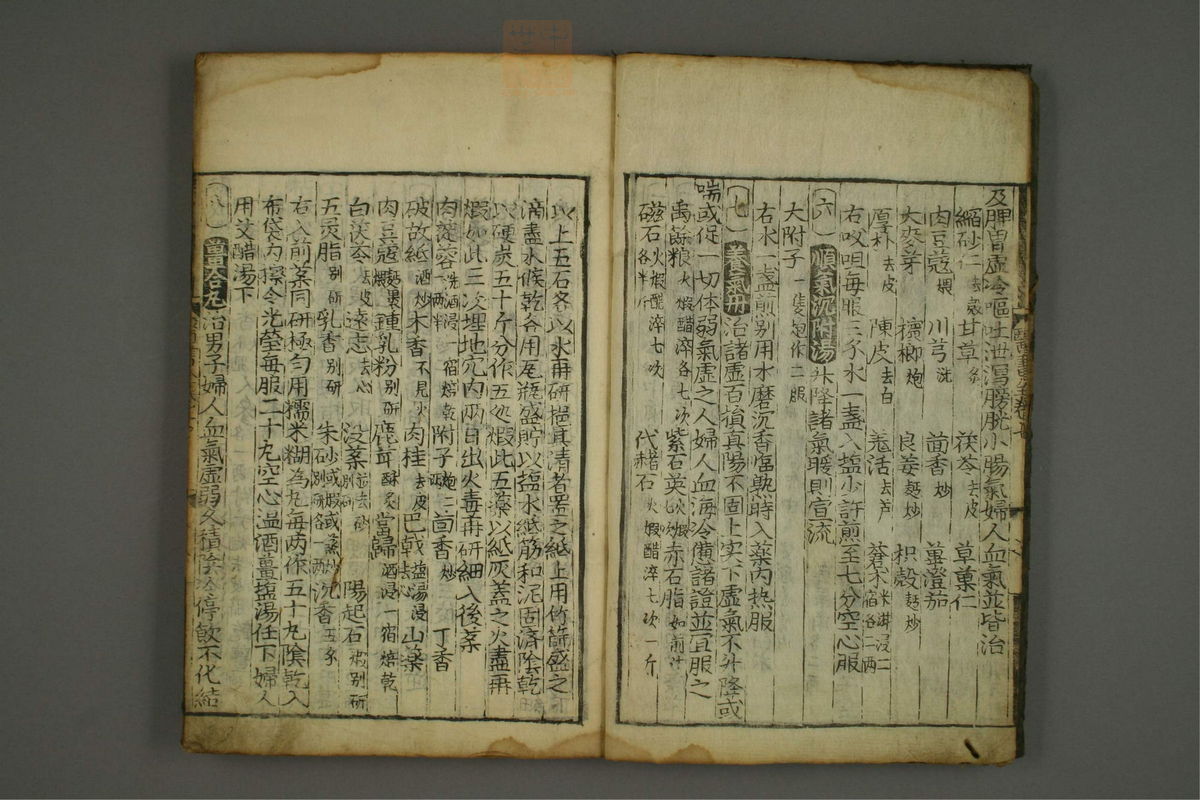 及脾胃虛冷嘔吐泄瀉膀胱小腸氣婦人血氣並皆治
縮砂仁去殼 甘草炙 茯苓去皮 草菓仁
肉豆蔻煨 川芎洗 茴香炒 蓽澄茄
大麥芽 檳榔炮 良姜麪炒 枳殼麪炒
厚朴去皮 陳皮去白 羗活去芦 蒼术米泔浸二宿各二两
右㕮咀每服三分水一盞入塩少許煎至七分空心服
六 順氣沉附湯 升降諸氣暖則宣流
大附子一隻炮作二服
右水一盞煎别用水磨沉香冝熟時入薬内热服
七 養氣丹 治諸虛百損真陽不固上实下虛氣不升降或
喘或促一切体弱氣虛之人婦人血海冷憊諸證並宜服之
禹餘粮火煅醋淬各七次 紫石英火煅七次 赤石脂如前
磁石各半斤火煅醋淬七次 代赭石火煅醋淬七次一斤
以上五石各以水再研挹其清者置之紙上用竹篩盛之
滴盡水候乾各用瓦瓶盛貯以塩水紙筋和泥固済陰乾
以硬炭五十斤分作五处煅此五薬以紙灰盖之火盡再
煅如此三次埋地穴内兩日出火毒再研細入後薬
肉蓯蓉洗酒浸一宿焙乾 附子炮二两 茴香炒 丁香
破故紙酒炒 木香不見火 肉桂去皮 巴戟塩湯浸去心 山薬
肉豆蔻麪裹煨 鍾乳粉别研 鹿茸酥炙 當歸酒浸一宿焙乾
白茯苓去皮 遠志去心 没薬去砂别研 陽起石煅别研
五灵脂别研 乳香别研 朱砂或煅或蒸炒别研各一两 沉香
右入前薬同研極勻用糯米糊為丸每两作五十丸陰乾入
布袋内擦令光瑩每服二十丸空心溫酒薑塩湯任下婦人
用艾醋湯下
八 當谷丸 治男子婦人血氣虛弱久積陰冷停飲不化結